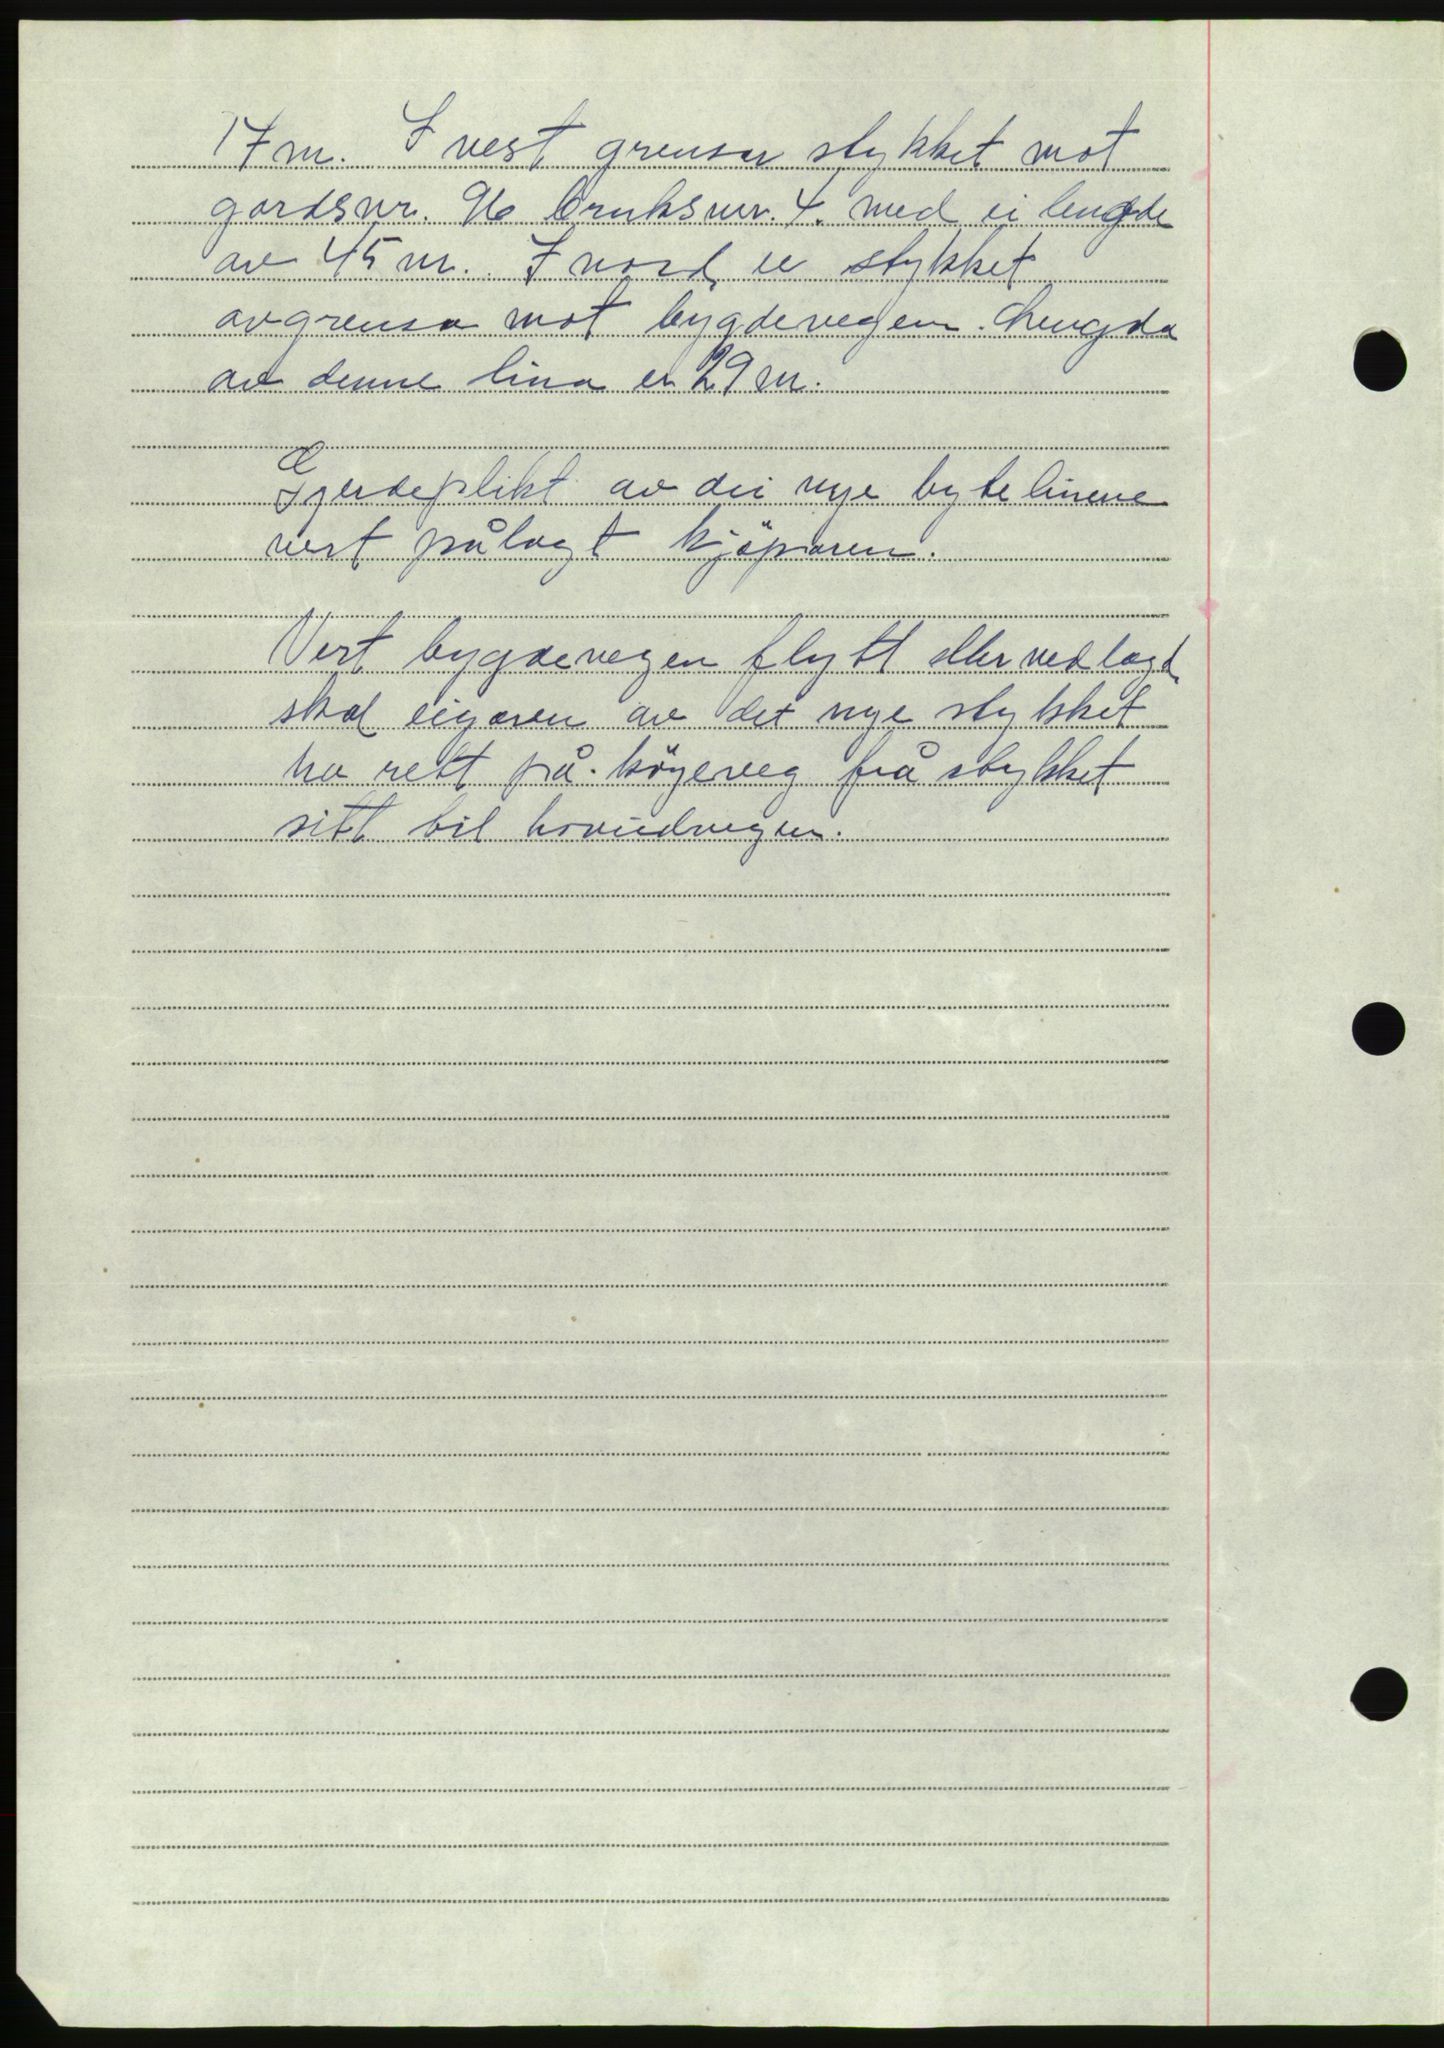 17 m. I vest grensar stykket mot
gardsnr. 96 bruksnr. 4. med ei lengde
av 45 m. I nord er stykket
avgrensa mot bygdevegen. Lengda
av denne lina er 29 m.
Gjerdeplikt av dei nye bytelinene
vert pålagt kjöparen.
Vert bygdevegen flytt eller nedlagd,
skal eigaren av det nye stykket
ha rett på köyreveg frå stykket
sitt til hovudvegen.